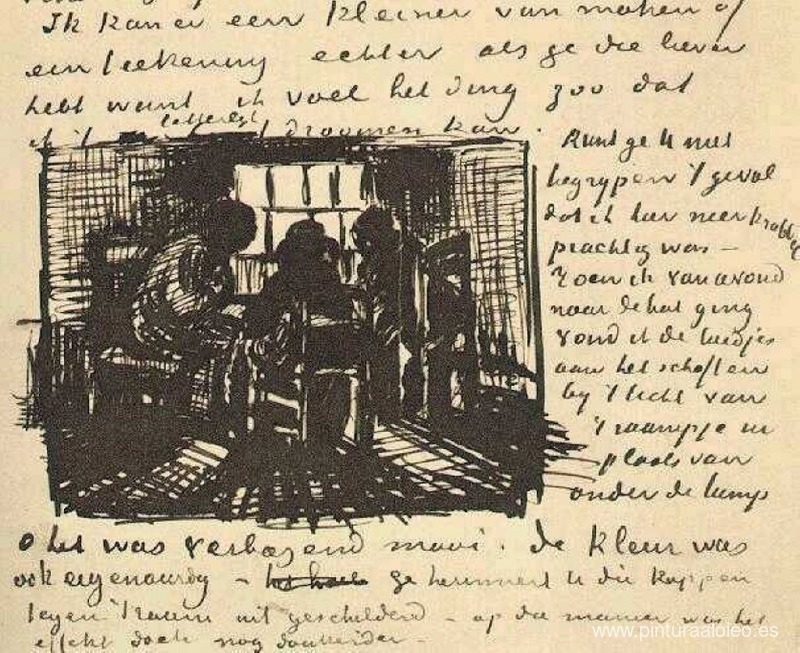 Ik kan er een kleiner van maken of
een teekening echter als ge die liever
hebt want ik voel het ding zoo dat
ik 't letterlijk droomen kan.
Kunt ge U niet
begrypen 't geval
dat ik hier neerkrabbel
prachtig was –
Toen ik van avond
naar de hut ging
vond ik de luidjes
aan het schoften
by 't licht van
't raampje in
plaats van
onder de lamp
O het was verbazend mooi. de kleur was
ook eigenaardig – ge herinnert U die koppen
tegen 't raam uit geschilderd – op die manier was het
effekt doch nog donkerder –
www.pinturaaloleo.es